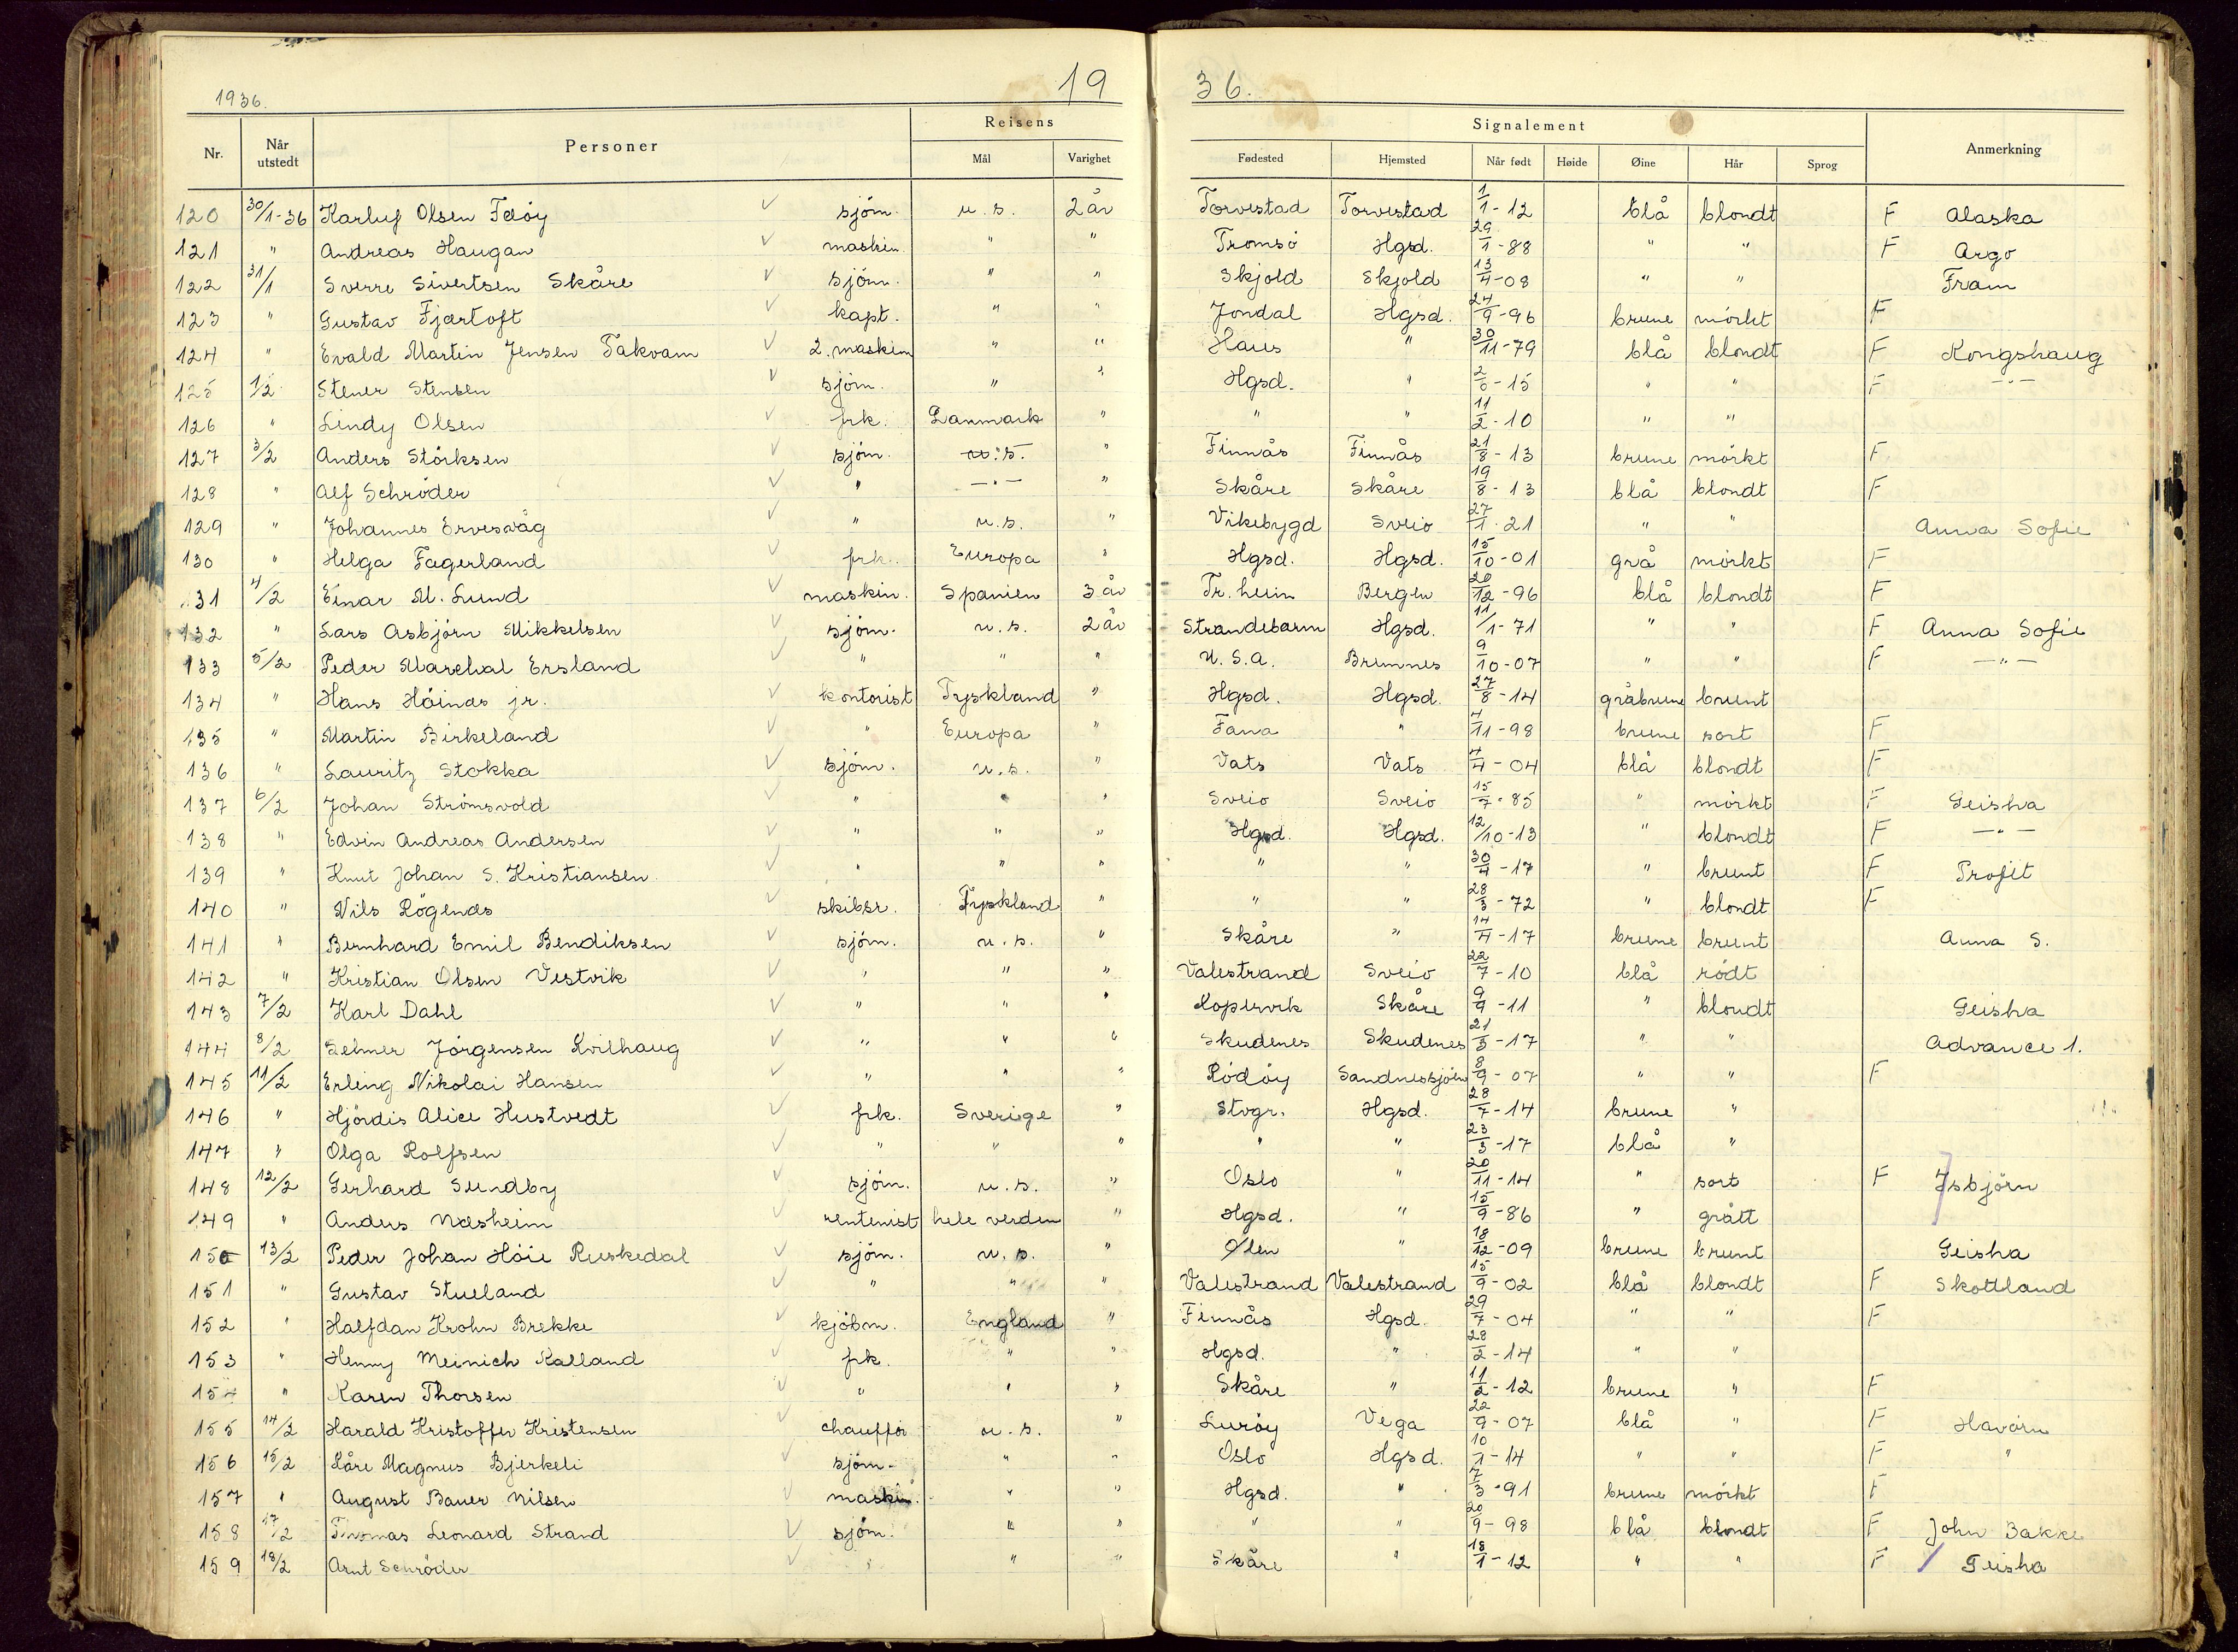 1936. 19 36.
Nr. Når utstedt Personer Reisens Mål Varighet Signalement Fødested Hjemsted Når født Høide Øine Hår Sprog Anmerkning
120 30/1-36 Karluf Olsen Feöy sjöm. u.s. 2 år Torvestad Torvestad 1/1-12 blå blondt F Alaska
121 " Andreas Haugan maskin. " " Tromsö Hgsd. 29/1-88 " " F Argo
122 31/1 Sverre Sivertsen Skåre sjöm. " " Skjold Skjold 13/4-08 " " Fram
123 " Gustav Fjærtoft kapt. " " Jondal Hgsd. 24/9-96 brune mörkt F
124 " Evald Martin Jensen Takvam 2. maskin " " Haus " 30/11-79 blå blondt F Kongshaug
125 1/2 Stener Stensen sjöm. " " Hgsd. " 2/6-15 " " F —"—
126 " Lindy Olsen frk. Danmark " " " 11/2-10 " "
127 3/2 Anders Störksen sjöm. u.s. " Finnås Finnås 21/8-13 brune mörkt F
128 " Alf Schröder " —"— " Skåre Skåre 19/8-13 blå blondt F
129 " Johannes Ervesvåg " u.s. " Vikebygd Sveio 27/1-21 " " Anna Sofie
130 " Helga Fagerland frk. Europa " Hgsd. Hgsd. 15/10-01 grå mörkt F
131 4/2 Einar M. Lund maskin. Spanien 3 år Tr.heim Bergen 20/12-96 blå blondt F
132 " Lars Asbjörn Mikkelsen sjöm. u.s. 2 år Strandebarm Hgsd. 11/1-71 " " F Anna Sofie
133 5/2 Peder Marchal Ersland " " " U.S.A. Bremnes 9/10-07 " " F —"—
134 " Hans Höinæs jr. kontorist Tyskland " Hgsd. Hgsd. 27/8-14 gråbrune brunt
135 " Martin Birkeland " Europa " Fana " 4/11-98 brune sort F
136 " Lauritz Stokka sjöm. u.s. " Vats Vats 4/4-04 blå blondt F
137 6/2 Johan Strömsvold " " " Sveio Sveio 15/7-85 " mörkt F Geisha
138 " Edvin Andreas Andersen " " " Hgsd. Hgsd. 12/10-13 " blondt F —"—
139 " Knut Johan S. Kristiansen " " " " " 30/4-17 " brunt F Profit
140 " Nils Rögenæs skibsr. Tyskland " " " 28/3-72 " blondt F
141 " Bernhard Emil Bendiksen sjöm. u.s. " Skåre " 14/4-17 brune brunt Anna S.
142 " Kristian Olsen Vestvik " " " Valestrand Sveio 22/7-10 blå rödt
143 7/2 Karl Dahl " " " Kopervik Skåre 9/9-11 " blondt Geisha
144 8/2 Selmer Jörgensen Kvilhaug " " " Skudenes Skudenes 21/5-17 " " Advance 1.
145 11/2 Erling Nikolai Hansen " " " Rödöy Sandnessjöen 8/9-07 " " F
146 " Hjördis Alice Hustvedt frk. Sverige " Stvgr. Hgsd. 28/7-14 brune "
147 " Olga Rolfsen " " " " " 23/3-17 blå "
148 12/2 Gerhard Sundby sjöm. u.s. " Oslo " 20/11-14 " sort F Isbjörn
149 " Anders Næsheim rentenist hele verden " Hgsd. " 15/9-86 " grått
150 13/2 Peder Johan Höie Ruskedal sjöm. u.s. " Ølen " 18/12-09 brune brunt Geisha
151 " Gustav Stueland " " " Valestrand Valestrand 15/9-02 blå blondt F Skottland
152 " Halfdan Krohn Brekke kjöbm. England " Finnås Hgsd. 29/7-04 " " F
153 " Henny Meinich Kalland frk. " " Hgsd. " 28/2-14 " "
154 " Karen Thorsen " " " Skåre " 11/2-12 brune " F
155 14/2 Harald Kristoffer Kristensen chaufför u.s. " Luröy Vega 22/9-07 blå " F Havörn
156 15/2 Kåre Magnus Bjerkeli sjöm. " " Oslo Hgsd. 10/1-14 " " F "
157 " August Bauer Nilsen maskin. " " Hgsd. " 7/3-91 brune mörkt F
158 17/2 Thomas Leonard Strand sjöm. " " " " 20/9-98 blå blondt F John Bakke
159 18/2 Arnt Schröder " " " Skåre " 18/1-12 " " F Geisha